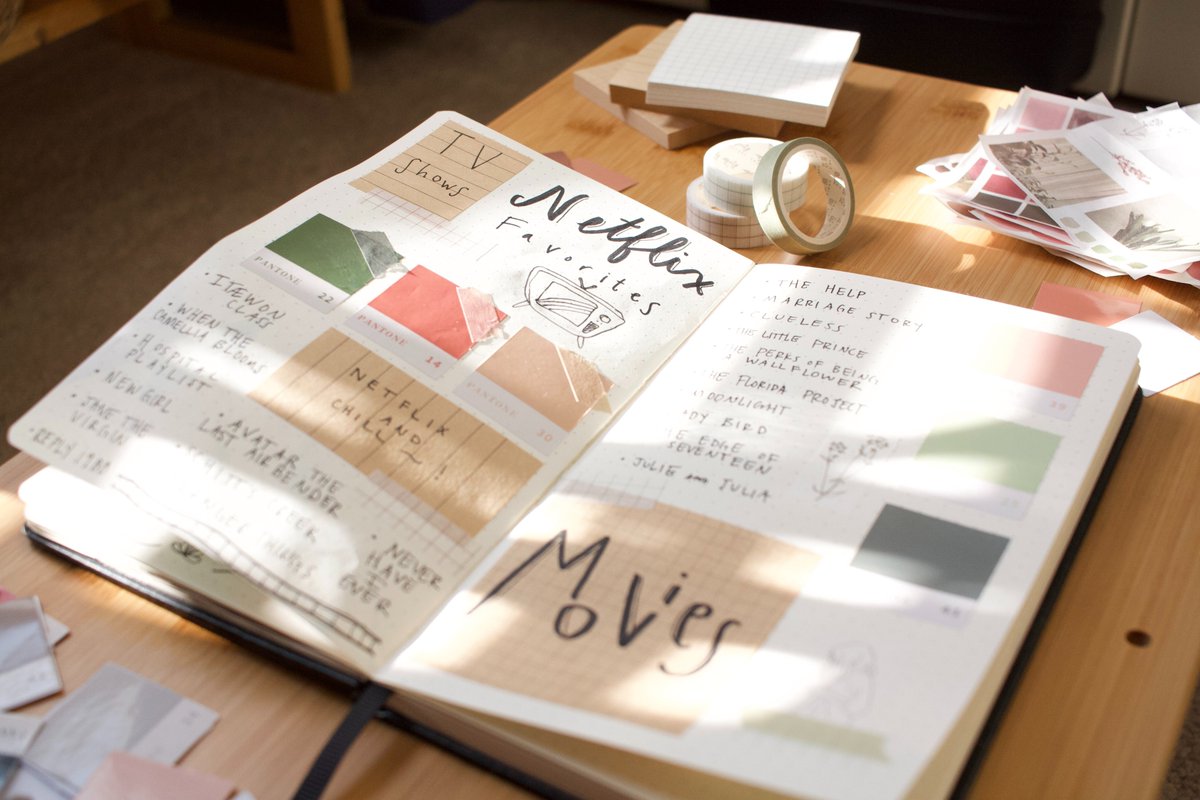 TV
Shows
Netflix
Favorites
PANTONE
22
PANTONE
14
PANTONE
30
• ITEWON
CLASS
• WHEN THE
CAMELLIA BLOOMS
• HOSPITAL
PLAYLIST
• NEW GIRL
• JANE THE
VIRGIN
• REPLY 1988
NETFLIX
AND
CHILL!
• AVATAR THE
LAST AIRBENDER
CREEK
THINGS
• NEVER
HAVE
I
EVER
• THE HELP
• MARRIAGE STORY
• CLUELESS
THE LITTLE PRINCE
THE PERKS OF BEING
A WALLFLOWER
THE FLORIDA PROJECT
MOONLIGHT
DY BIRD
E EDGE OF
SEVENTEEN
• JULIE AND JULIA
Movies